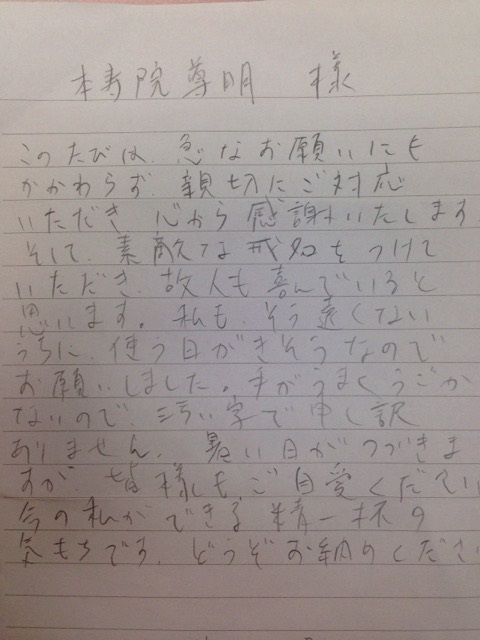 本寿院尊明 様
このたびは、急なお願いにも
かかわらず、親切にご対応
いただき 心から感謝いたします。
そして、素敵な戒名をつけて
いただき、故人も喜んでいると
思います。私も、そう遠くない
うちに、使う日がきそうなので
お願いしました。手がうまくうごか
ないので、汚い字で申し訳
ありません。暑い日がつづきま
すが 皆様も、ご自愛ください
今の私ができる精一杯の
気もちです。どうぞお納めくださ